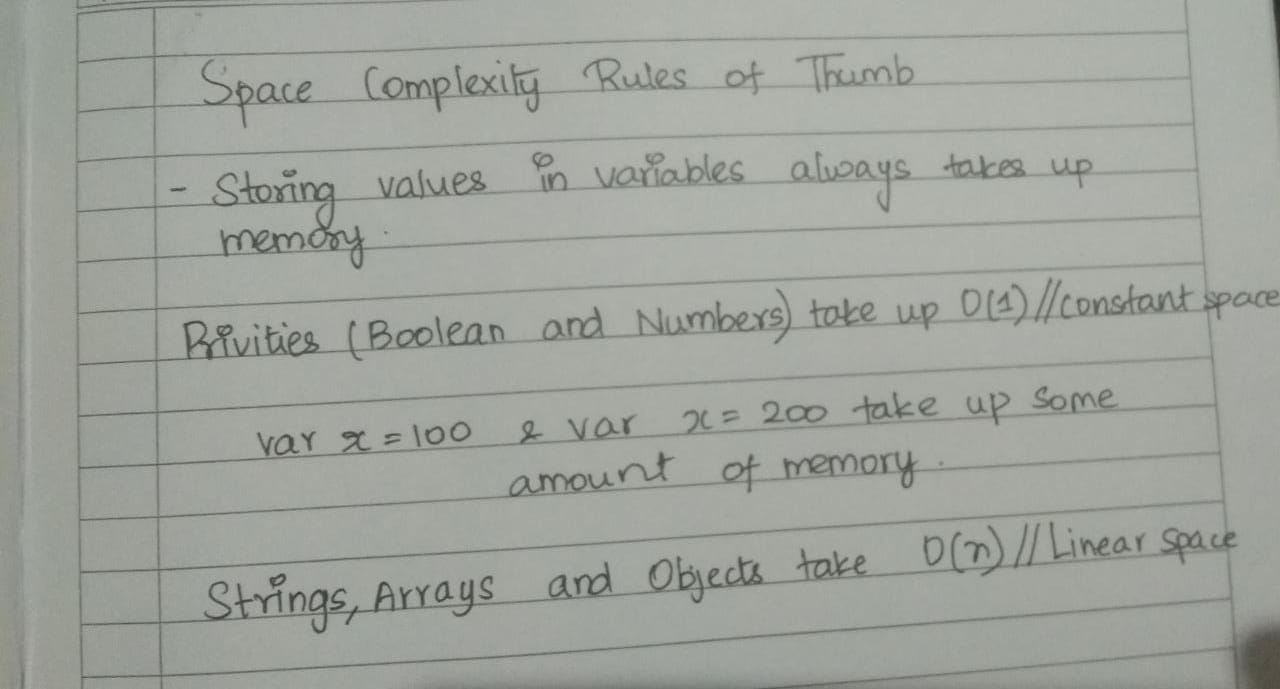 Space Complexity Rules of Thumb
- Storing values in variables always takes up
memory.
Privities (Boolean and Numbers) take up O(1) // constant space
var x = 100 & var x = 200 take up some
amount of memory.
Strings, Arrays and Objects take O(n) // Linear space